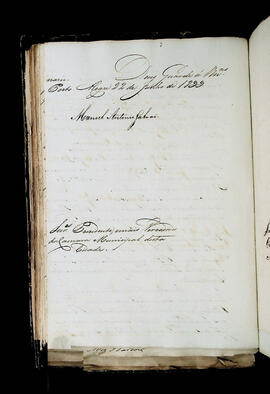 Deus Guarde a Vm.ces
Porto Alegre 22 de Julho de 1833
Manoel Antonio Galvão
Snr.s Presidente, e mais Vereadores
da Camara Municipal desta
Cidade.